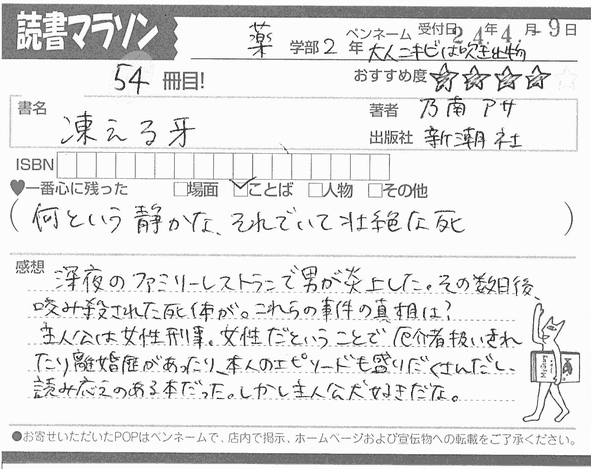 読書マラソン
受付日 24年4月-9日
薬学部2年 ペンネーム 大人ニキビは吹き出物
54冊目!
おすすめ度 ★★★★☆
書名 凍える牙
著者 乃南アサ
出版社 新潮社
ISBN
♥一番心に残った □場面 ☑ことば □人物 □その他
(何という静かな、それでいて壮絶な死)
感想
深夜のファミリーレストランで男が炎上した。その数日後、
咬み殺された死体が。これらの事件の真相は?
主人公は女性刑事。女性だということで厄介者扱いされ
たり離婚歴があったり、本人のエピソードも盛りだくさんだし、
読み応えのある本だった。しかし主人公犬好きだな。
●お寄せいただいたPOPはペンネームで、店内で掲示、ホームページおよび宣伝物への転載をご了承ください。